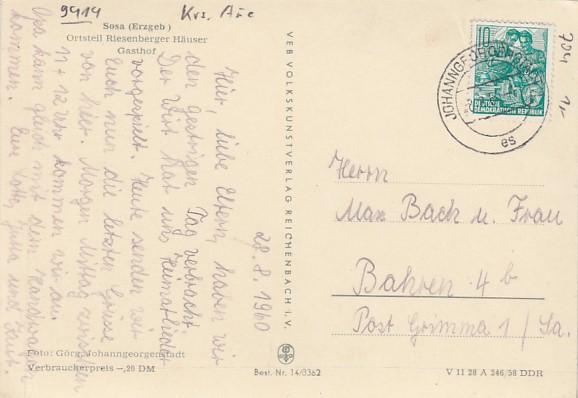 9414 Krs. Aue
Sosa (Erzgeb)
Ortsteil Riesenberger Häuser
Gasthof
28.8.1960
Hier, liebe Eltern, haben wir
den gestrigen Tag verbracht
Der Wirt hat uns Heimatlieder
vorgespielt. Heute senden wir
Euch nun die letzten Grüße
von hier. Morgen Mittag zwischen
11 + 12 Uhr kommen wir an
Opa kann gleich mit dem Handwagen
kommen. Eure Lotte, und Kurt.
Foto: Görg, Johanngeorgenstadt
Verbraucherpreis -,20 DM
VEB VOLKSKUNSTVERLAG REICHENBACH I. V.
Best. Nr. 14/3362
V 11 28 A 246/58 DDR
JOHANNGEORGENSTADT
es
10
DEUTSCHE
DEMOKRATISCHE REPUBLIK
Herrn
Max Bach u. Frau
Bahren 4 b
Post Grimma 1 / Sa.